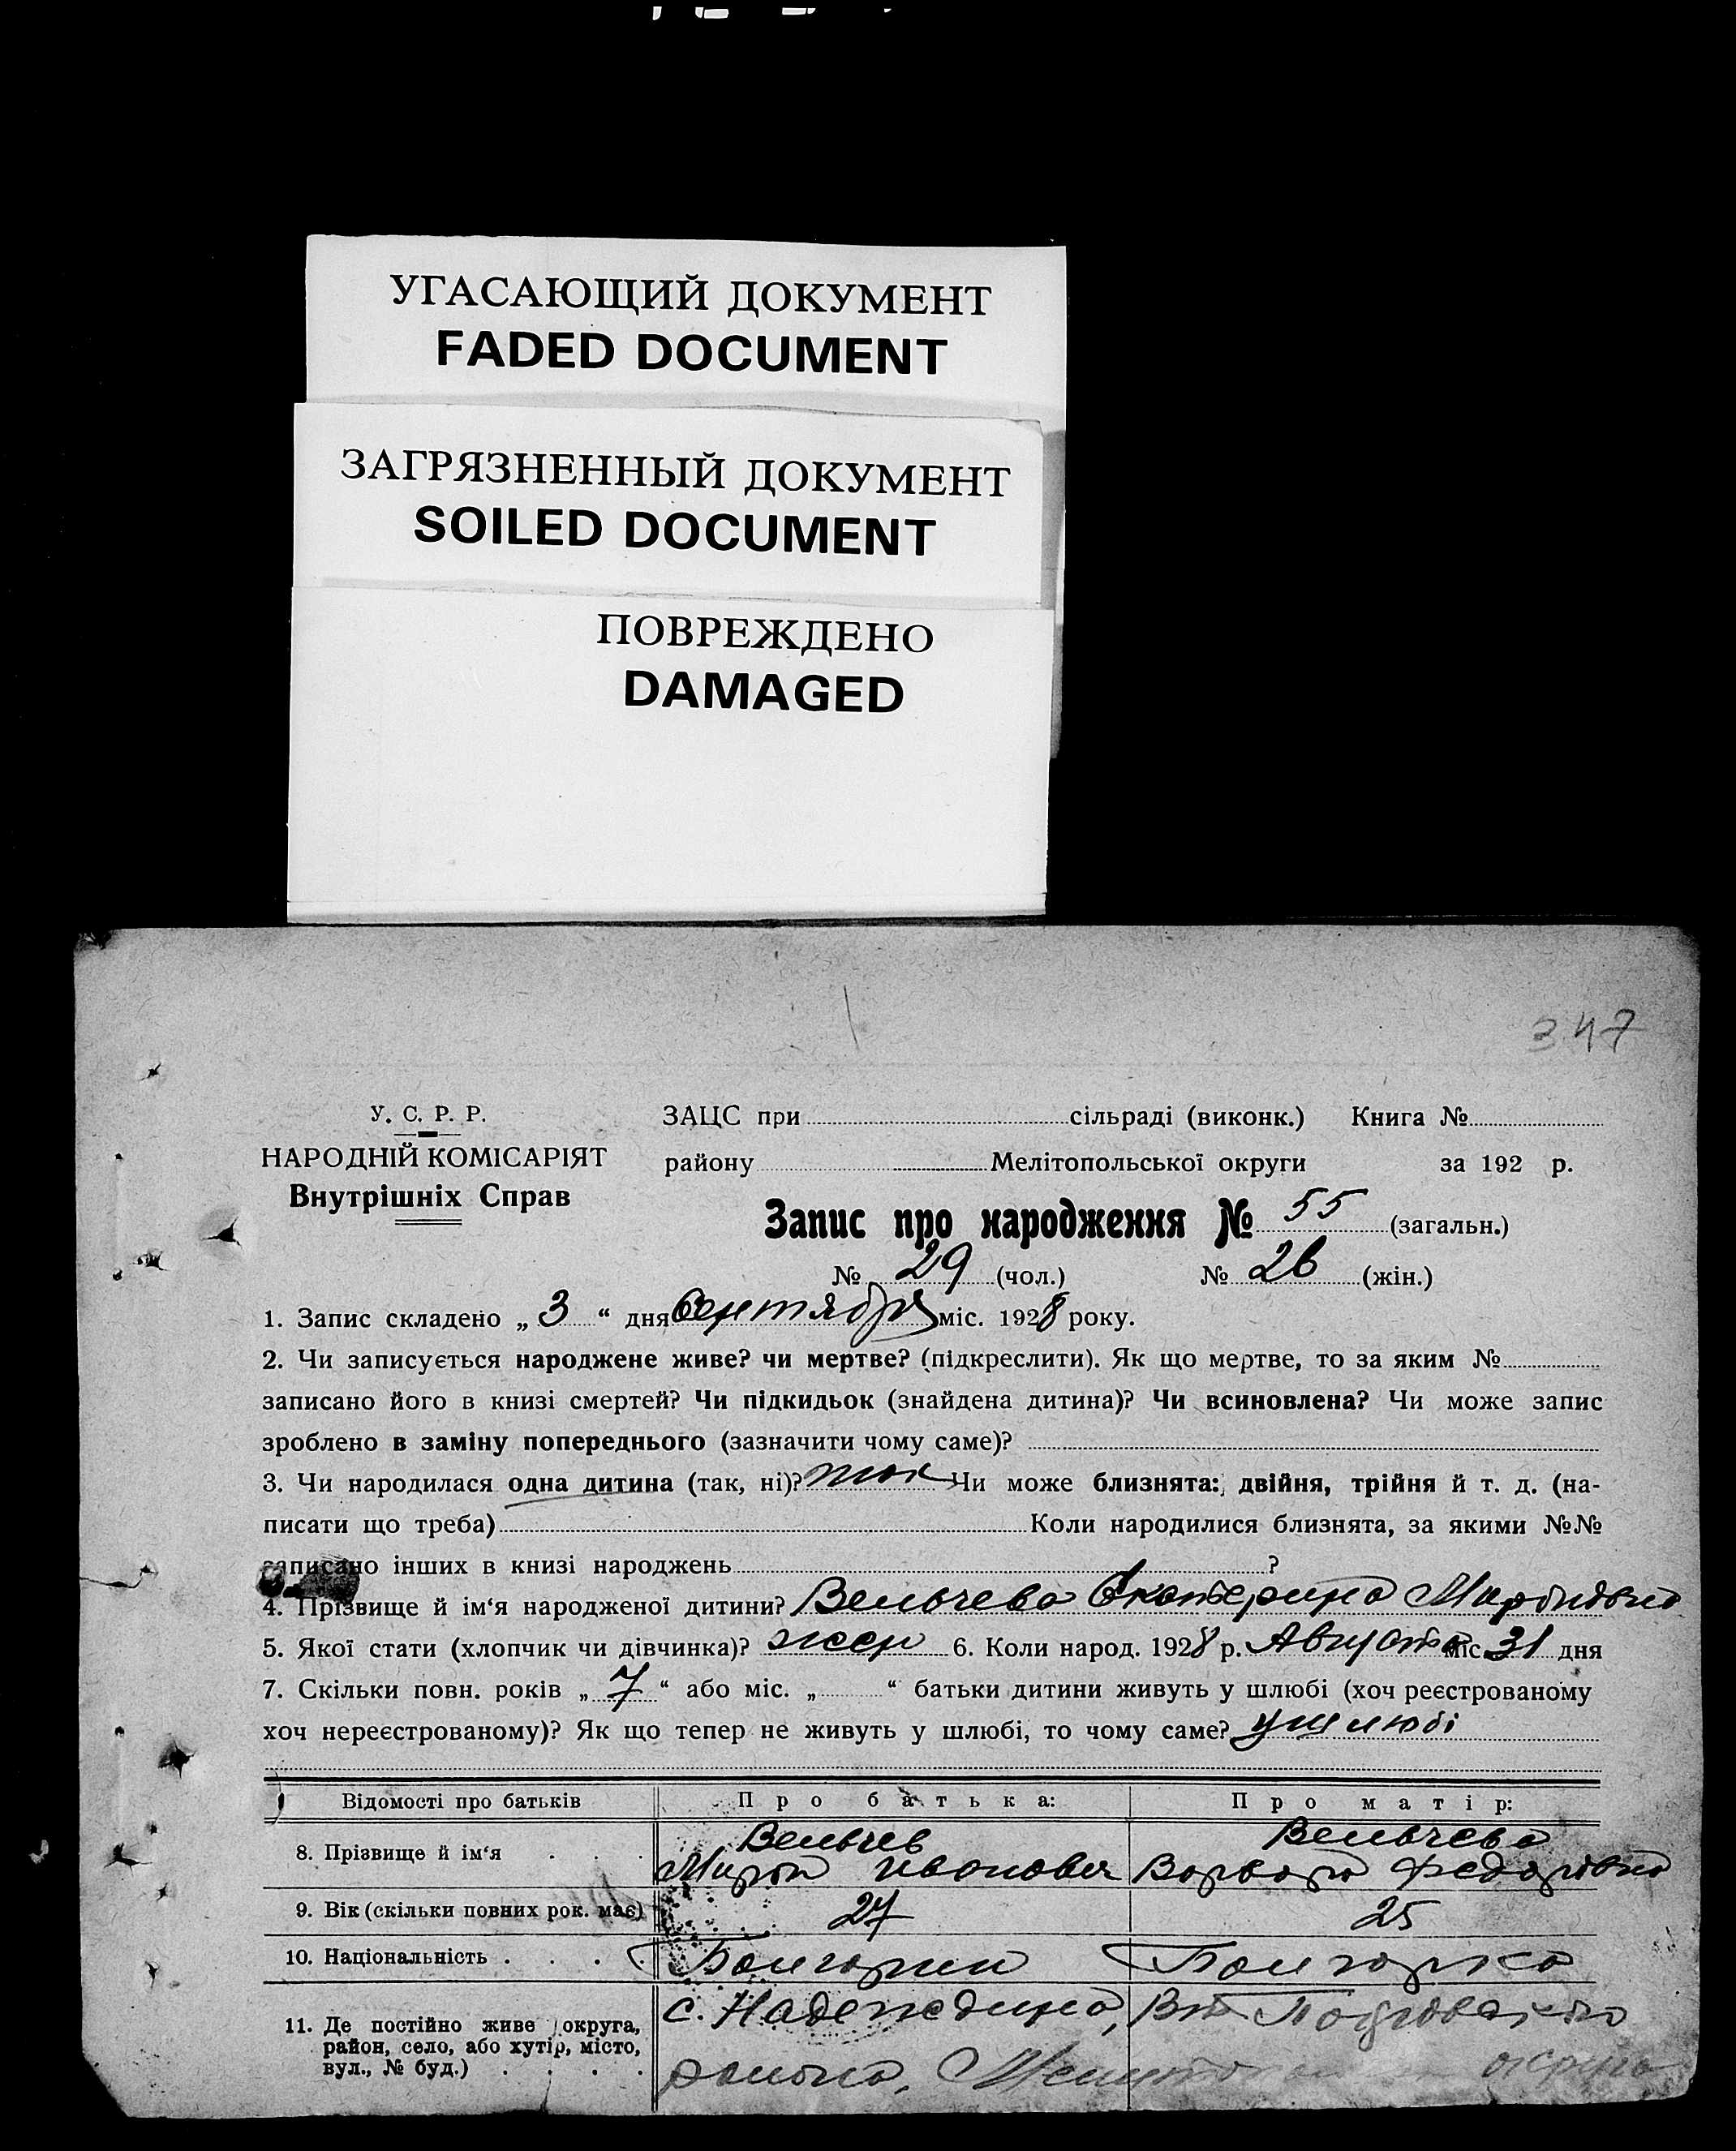 УГАСАЮЩИЙ ДОКУМЕНТ
FADED DOCUMENT
ЗАГРЯЗНЕННЫЙ ДОКУМЕНТ
SOILED DOCUMENT
ПОВРЕЖДЕНО
DAMAGED
347
У. С. Р. Р.
НАРОДНІЙ КОМІСАРІЯТ
Внутрішніх Справ
ЗАЦС при сільраді (виконк.) Книга №
району Мелітопольської округи за 192 р.
Запис про народження № 55 (загальн.)
№ 29 (чол.) № 26 (жін.)
1. Запис складено „ 3 “ дня Сентября міс. 1928 року.
2. Чи записується народжене живе? чи мертве? (підкреслити). Як що мертве, то за яким №
записано його в книзі смертей? Чи підкидьок (знайдена дитина)? Чи всиновлена? Чи може запис
зроблено в заміну попереднього (зазначити чому саме)?
3. Чи народилася одна дитина (так, ні)? так Чи може близнята: двійня, трійня й т. д. (на-
писати що треба) Коли народилися близнята, за якими №№
записано інших в книзі народжень ?
4. Прізвище й ім‘я народженої дитини? Вельчева Екатерина Миронівна
5. Якої стати (хлопчик чи дівчинка)? жен 6. Коли народ. 1928 р. Августа міс. 31 дня
7. Скільки повн. років „ 7 “ або міс. „ “ батьки дитини живуть у шлюбі (хоч реєстрованому
хоч нереєстрованому)? Як що тепер не живуть у шлюбі, то чому саме? у шлюбі
Відомості про батьків Про батька: Про матір:
8. Прізвище й ім‘я . . . Вельчев Вельчева
Мирон Иванович Варвара Федорівна
9. Вік (скільки повних рок. має) 27 25
10. Національність . . . . Болгарин Болгарка
11. Де постійно живе (округа,
район, село, або хутір, місто,
вул., № буд.) . . . .
с. Надеждино,
района, округа